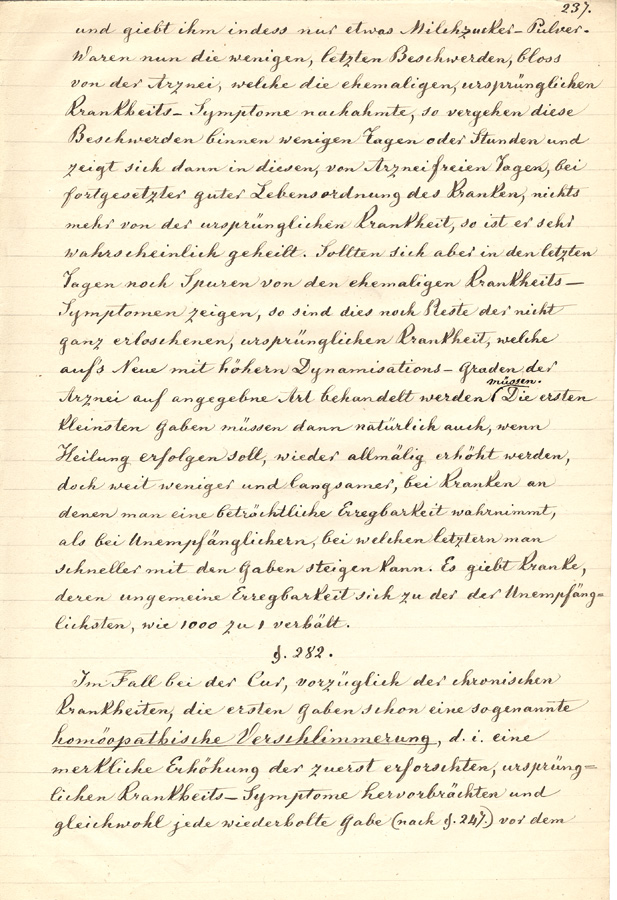 237.
und giebt ihm indess nur etwas Milchzucker-Pulver.
Waren nun die wenigen, letzten Beschwerden, bloss
von der Arznei, welche die ehemaligen, ursprünglichen
Krankheits-Symptome nachahmte, so vergehen diese
Beschwerden binnen wenigen Tagen oder Stunden und
zeigt sich dann in diesen, von Arznei freien Tagen, bei
fortgesetzter guter Lebensordnung des Kranken, nichts
mehr von der ursprünglichen Krankheit, so ist er sehr
wahrscheinlich geheilt. Sollten sich aber in den letzten
Tagen noch Spuren von den ehemaligen Krankheits-
Symptomen zeigen, so sind dies noch Reste der nicht
ganz erloschenen, ursprünglichen Krankheit, welche
auf's Neue mit höhern Dynamisations-Graden der
müssen.
Arznei auf angegebne Art behandelt werden Die ersten
kleinsten Gaben müssen dann natürlich auch, wenn
Heilung erfolgen soll, wieder allmälig erhöht werden,
doch weit weniger und langsamer, bei Kranken an
denen man eine beträchtliche Erregbarkeit wahrnimmt,
als bei Unempfänglichern, bei welchen letztern man
schneller mit den Gaben steigen kann. Es giebt Kranke,
deren ungemeine Erregbarkeit sich zu der der Unempfäng=
lichsten, wie 1000 zu 1 verhält.
§. 282.
Im Fall bei der Cur, vorzüglich der chronischen
Krankheiten, die ersten Gaben schon eine sogenannte
homöopathische Verschlimmerung, d. i. eine
merkliche Erhöhung der zuerst erforschten, ursprüng=
lichen Krankheits-Symptome hervorbrächten und
gleichwohl jede wiederholte Gabe (nach §. 247.) vor dem